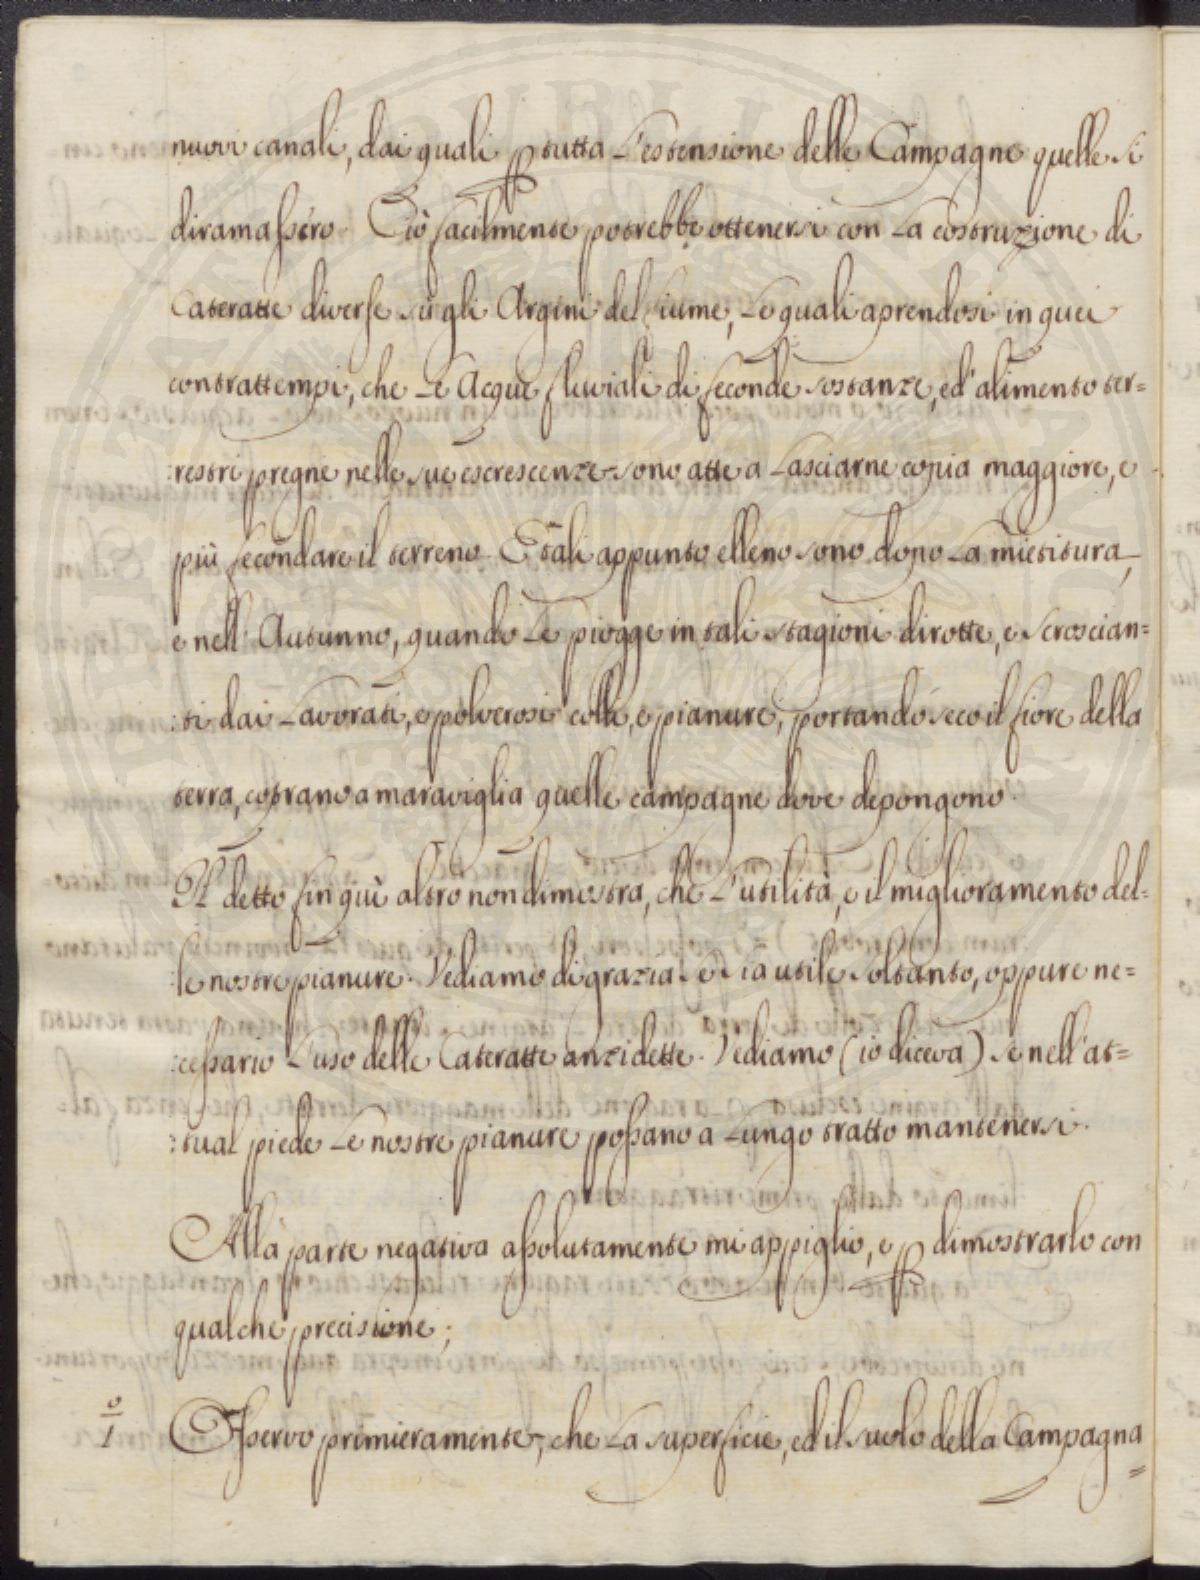 nuovi canali, dai quali p tutta L'estensione delle Campagne quelle si
diramassero. Ciò facilmente potrebbe ottenersi con La costruzione di
Cateratte diverse sù gli Argini del fiume, Le quali aprendosi in quei
contrattempi, che Le Acque fluviali di feconde sostanze, ed'alimento ter=
:restri pregne nelle sue escrescenze sono atte a Lasciarne copia maggiore, e
più fecondare il terreno. E tali appunto elleno sono dopo La mietitura,
e nell'Autunno, quando Le piogge in tali stagioni dirotte, e scroscian=
:ti dai Lavorati, e polverosi colli, e pianure, portando seco il fiore della
terra, coprano a maraviglia quelle campagne dove depongono.
Il detto fin quì altro non dimostra, che L'utilità, e il miglioramento del=
:le nostre pianure. Vediamo di grazia se sia utile soltanto, oppure ne=
:cessario L'uso delle Cateratte anzidette. Vediamo (io diceva) se nell'at=
:tual piede Le nostre pianure possano a Lungo tratto mantenersi.
Alla parte negativa assolutamente mi appiglio, e p dimostrarlo con
qualche precisione;
o/1 Osservo primieramente, che La superficie, ed il suolo della Campagna
=